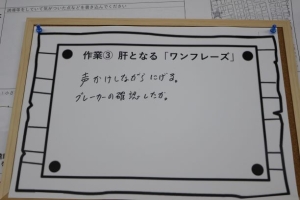 作業③ 肝となる「ワンフレーズ」
声かけしながらにげる。
ブレーカーの確認したか。